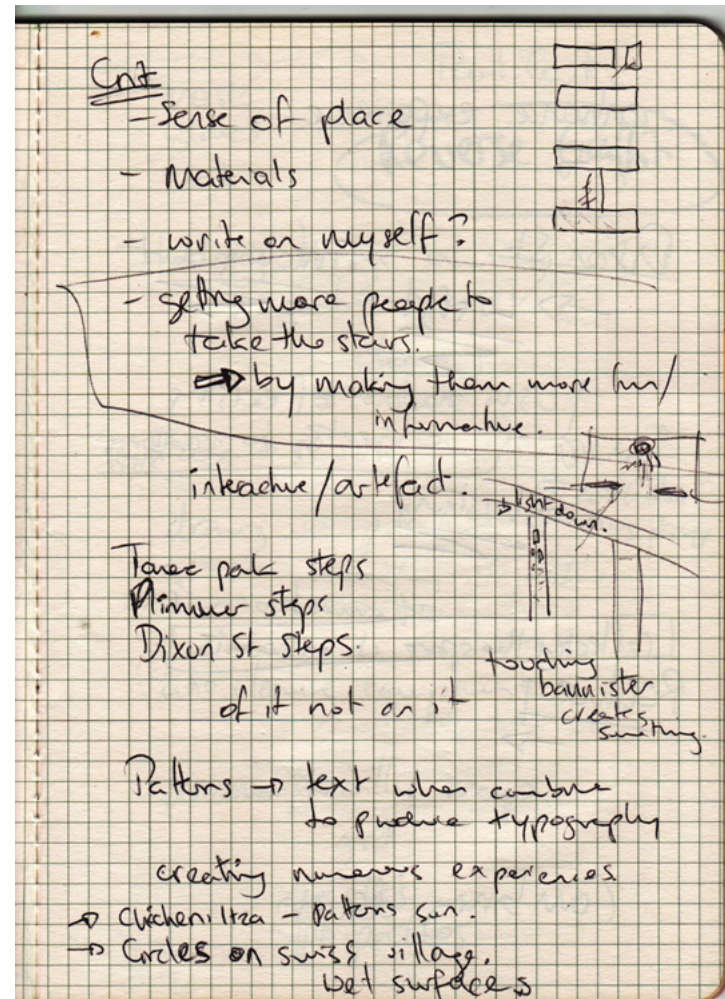 Crit
- Sense of place
- Materials
- write on myself?
- getting more people to
take the stairs.
⇒ by making them more fun/
informative.
interactive/artefact.
→ light down.
steps
Plimmer steps
Dixon St steps.
touching
bannister
creates
something.
of it not on it
Patterns → text when combine
to produce typography
creating numerous experiences
→ Chichen Itza - patterns sun.
→ Circles on swiss village.
wet surfaces